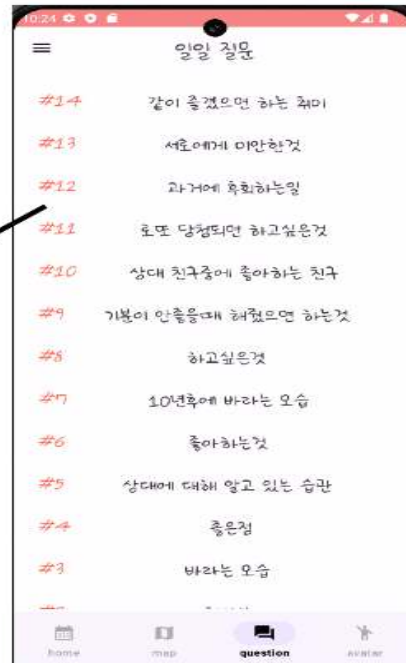 10:24
일일 질문
#14 같이 즐겼으면 하는 취미
#13 서로에게 미안한것
#12 과거에 후회하는일
#11 로또 당첨되면 하고싶은것
#10 상대 친구중에 좋아하는 친구
#9 기분이 안좋을때 해줬으면 하는것
#8 하고싶은것
#7 10년후에 바라는 모습
#6 좋아하는것
#5 상대에 대해 알고 있는 습관
#4 좋은점
#3 바라는 모습
home map question avatar